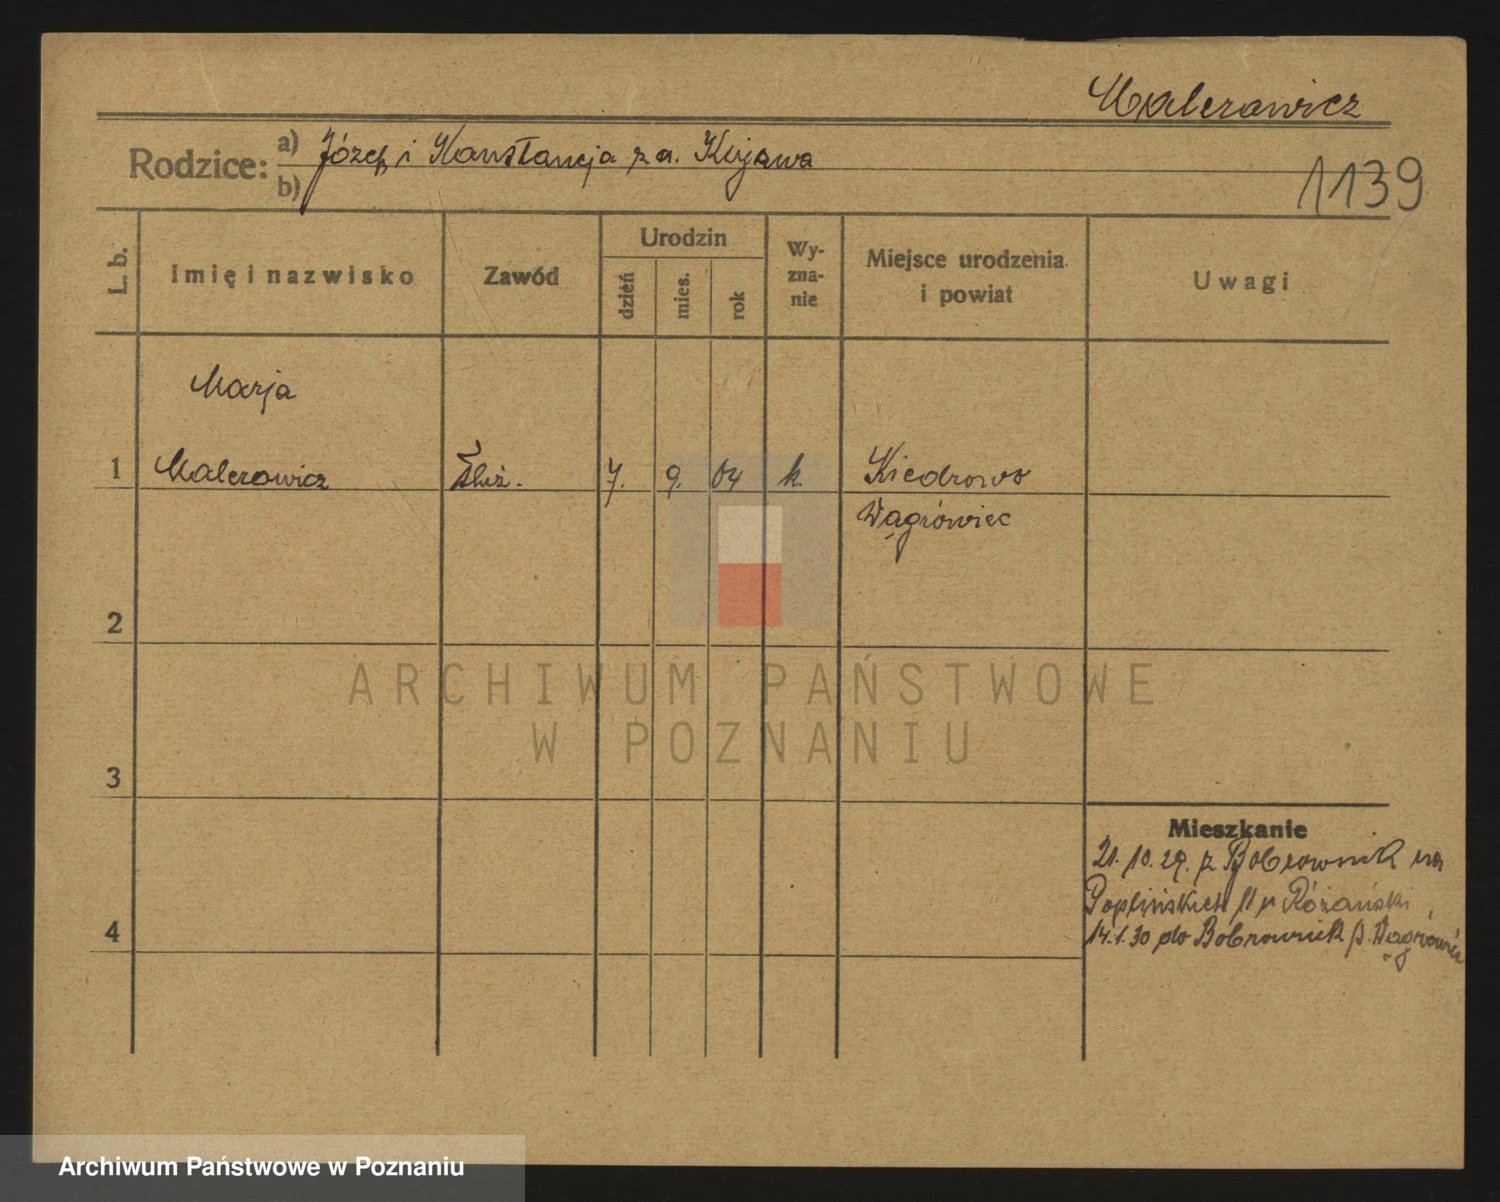 Malerowicz
Rodzice: a) Józef i Konstancja z d. Kujawa
b)
1139
L. b.
Imię i nazwisko
Zawód
Urodzin
dzień
mies.
rok
Wy-
zna-
nie
Miejsce urodzenia
i powiat
Uwagi
Marja
1 Malerowicz służ. 7. 9. 04 k. Kiedrowo
Wągrówiec
2
3
4
Mieszkanie
21.10.29. z Bobrownik na
Poplińskich 11 p Różański,
14.1.30 do Bobrownik p. Wągrówiec
ARCHIWUM PAŃSTWOWE
W POZNANIU
Archiwum Państwowe w Poznaniu